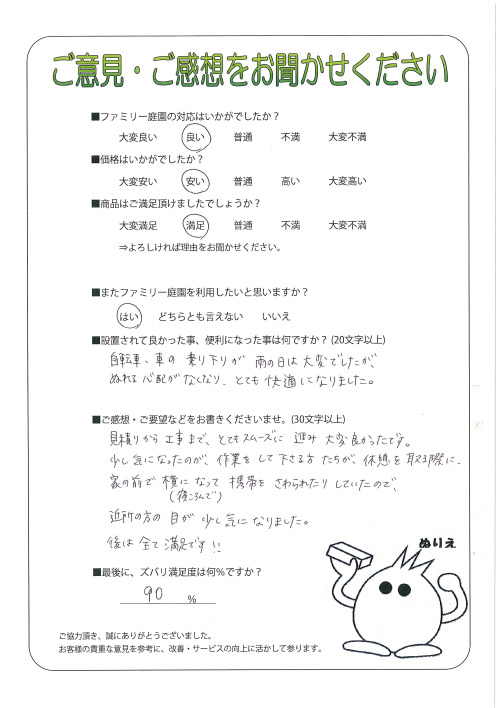 ご意見・ご感想をお聞かせください
■ファミリー庭園の対応はいかがでしたか？
大変良い 良い 普通 不満 大変不満
■価格はいかがでしたか？
大変安い 安い 普通 高い 大変高い
■商品はご満足頂けましたでしょうか？
大変満足 満足 普通 不満 大変不満
⇒よろしければ理由をお聞かせください。
■またファミリー庭園を利用したいと思いますか？
はい どちらとも言えない いいえ
■設置されて良かった事、便利になった事は何ですか？(20文字以上)
自転車、車の 乗り下りが 雨の日は 大変でしたが、
ぬれる心配がなくなり、とても 快適になりました。
■ご感想・ご要望などをお書きくださいませ。(30文字以上)
見積りから工事まで、とてもスムーズに 進み 大変良かったです。
少し気になったのが、作業を して下さる方 たちが、休憩を 取る際に、
家の前で 横に なって 携帯を さわられたり していたので、
(寝ころんで)
近所の方の 目が 少し気に なりました。
後は 全て 満足です!!
ぬりえ
■最後に、ズバリ満足度は何％ですか？
90 ％
ご協力頂き、誠にありがとうございました。
お客様の貴重な意見を参考に、改善・サービスの向上に活かして参ります。